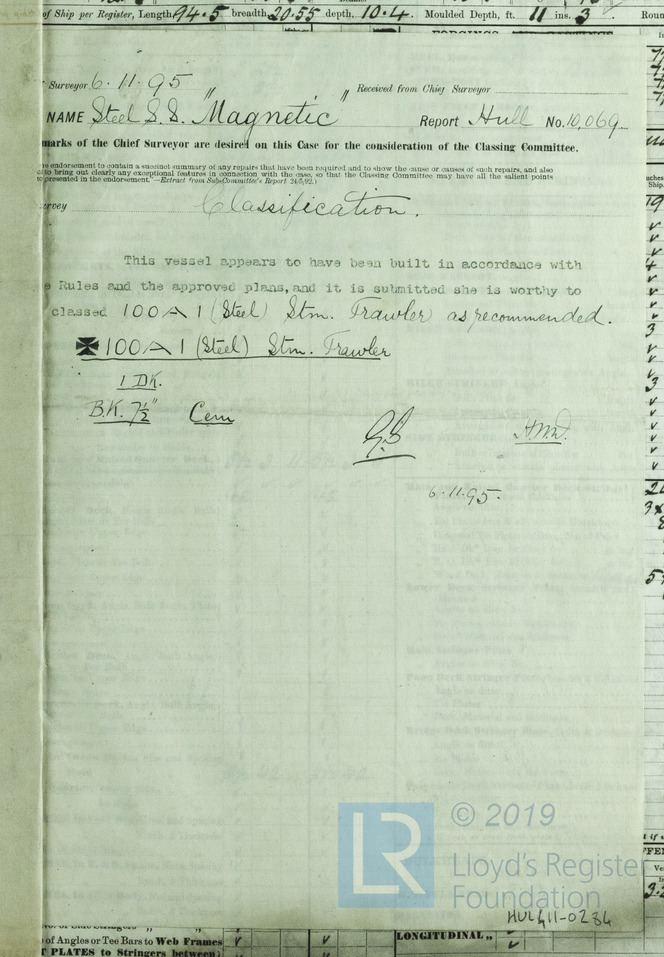 of Ship per Register, Length, 94.5 breadth 20.55 depth, 10.4. Moulded Depth, ft. 11 ins. 3
Surveyor 6.11.95 " " Received from Chief Surveyor
NAME Steel S.S. "Magnetic" Report Hull No. 10,069
marks of the Chief Surveyor are desired on this Case for the consideration of the Classing Committee.
endorsement to contain a succinct summary of any repairs that have been required and to show the cause or causes of such repairs, and also
to bring out clearly any exceptional features in connection with the case, so that the Classing Committee may have all the salient points
presented in the endorsement."—Extract from Sub-Committee's Report 24/5/92.)
urvey Classification.
This vessel appears to have been built in accordance with
e Rules and the approved plans, and it is submitted she is worthy to
classed 100 A 1 (Steel) Stm. Trawler as recommended.
✠ 100 A 1 (Steel) Stm. Trawler
1 DK.
B.K. 7½" Cem
6.11.95.
LR
© 2019
Lloyd's Register
Foundation
HUL411-0234
of Angles or Tee Bars to Web Frames
T PLATES to Stringers between
LONGITUDINAL "